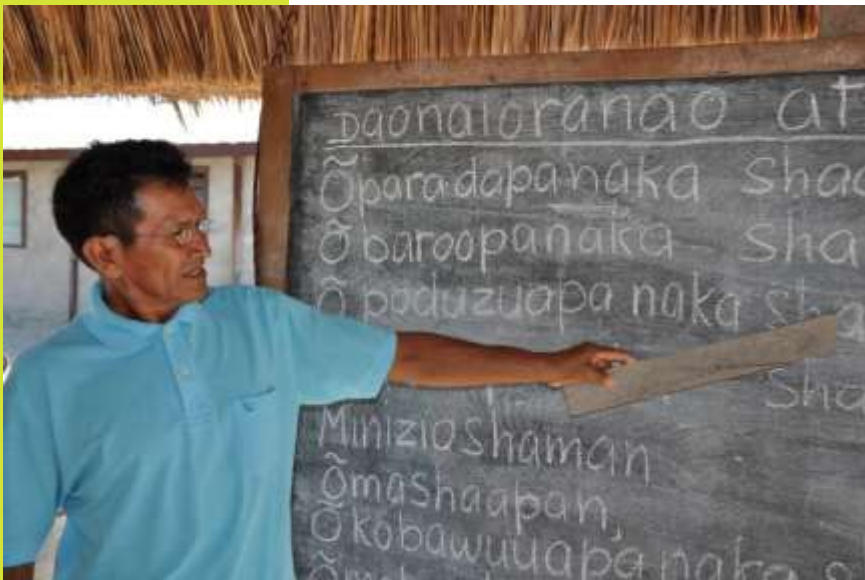 Daonaioranao at
Õparadapanaka Shaa
Õ baroopanaka Sha
Õ poduzuapa naka Sha
Sha
Minizioshaman
Õmashaapan,
Õkobawuuapanaka S